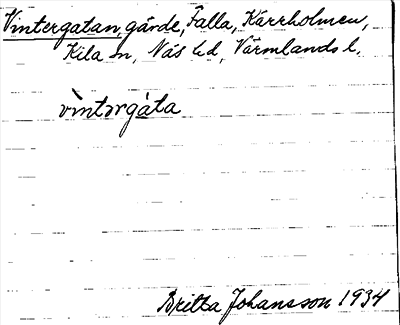 Vintergatan, gärde, Falla, Kärrholmen,
Kila sn, Näs hd, Värmlands l.
vìntərgàta
Britta Johansson 1934